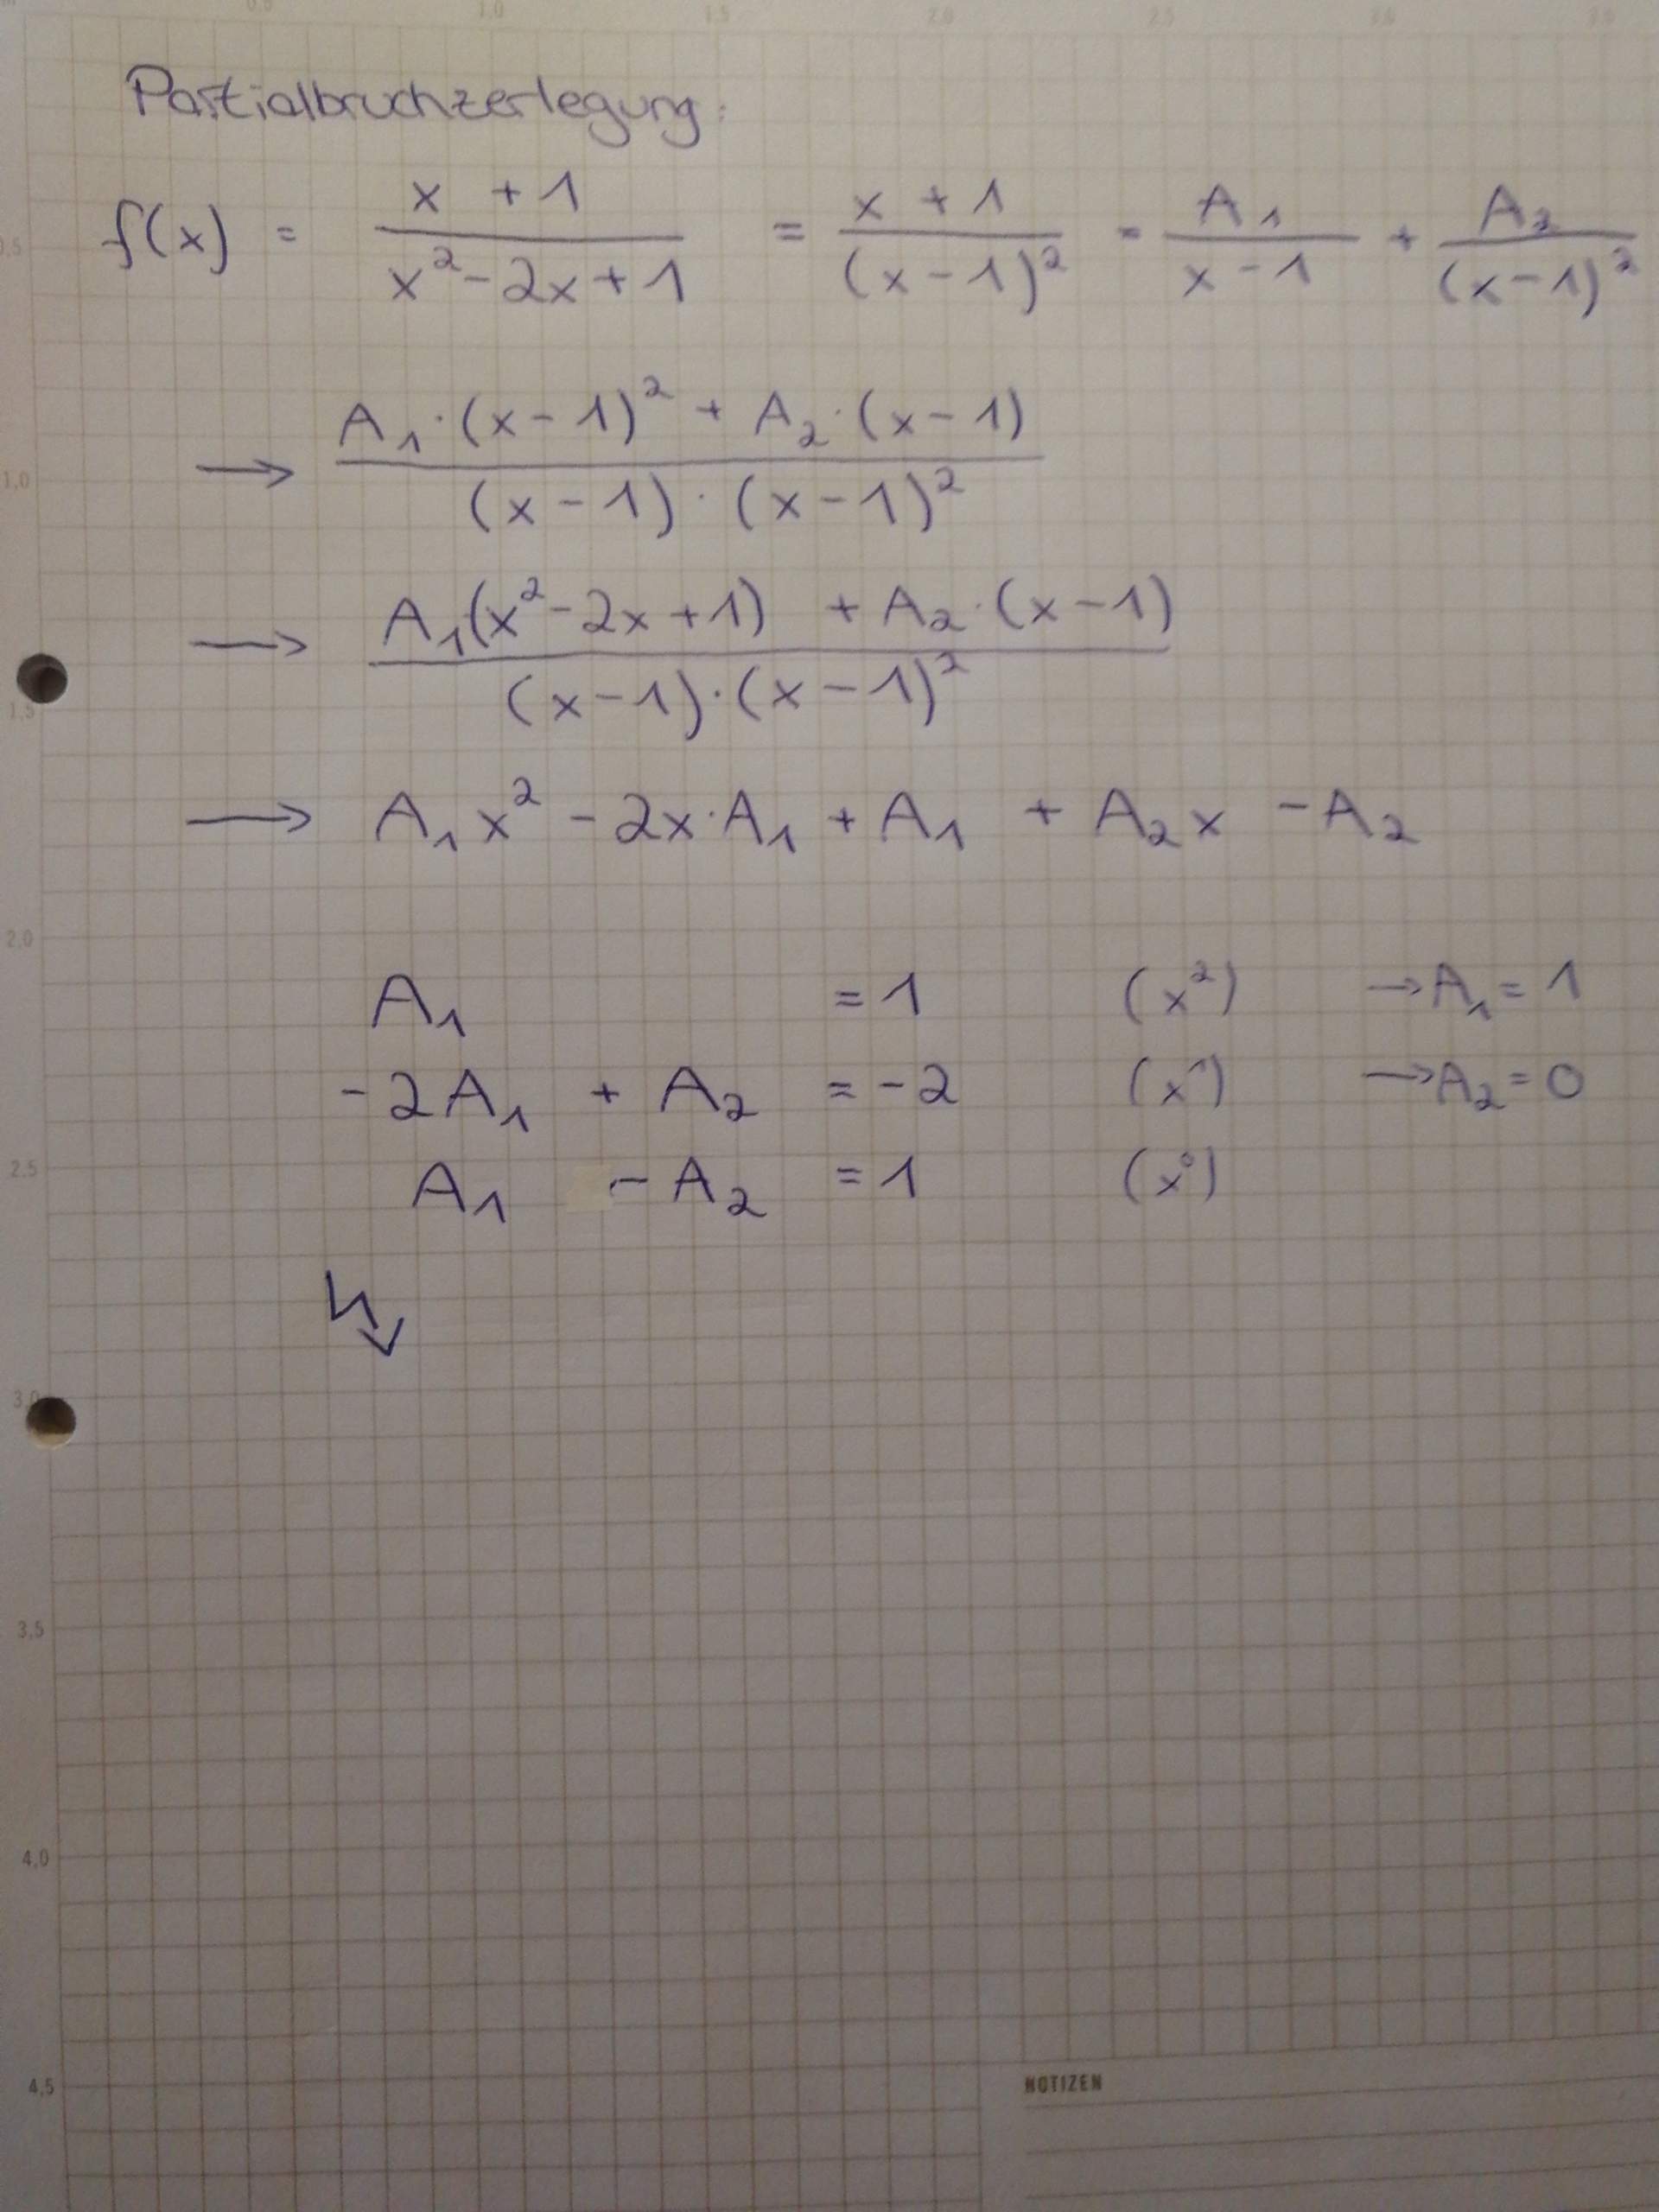 0,5 1,0 1,5 2,0 2,5 3,0
Partialbruchzerlegung:
f(x) = (x + 1)/(x² - 2x + 1) = (x + 1)/((x - 1)²) = A₁/(x - 1) + A₂/((x - 1)²)
→ (A₁ · (x - 1)² + A₂ · (x - 1))/((x - 1) · (x - 1)²)
→ (A₁(x² - 2x + 1) + A₂ · (x - 1))/((x - 1) · (x - 1)²)
→ A₁x² - 2x · A₁ + A₁ + A₂x - A₂
A₁ = 1 (x²) → A₁ = 1
-2A₁ + A₂ = -2 (x¹) → A₂ = 0
A₁ - A₂ = 1 (x⁰)
↯
0,5
1,0
1,5
2,0
2,5
3,0
3,5
4,0
4,5
NOTIZEN